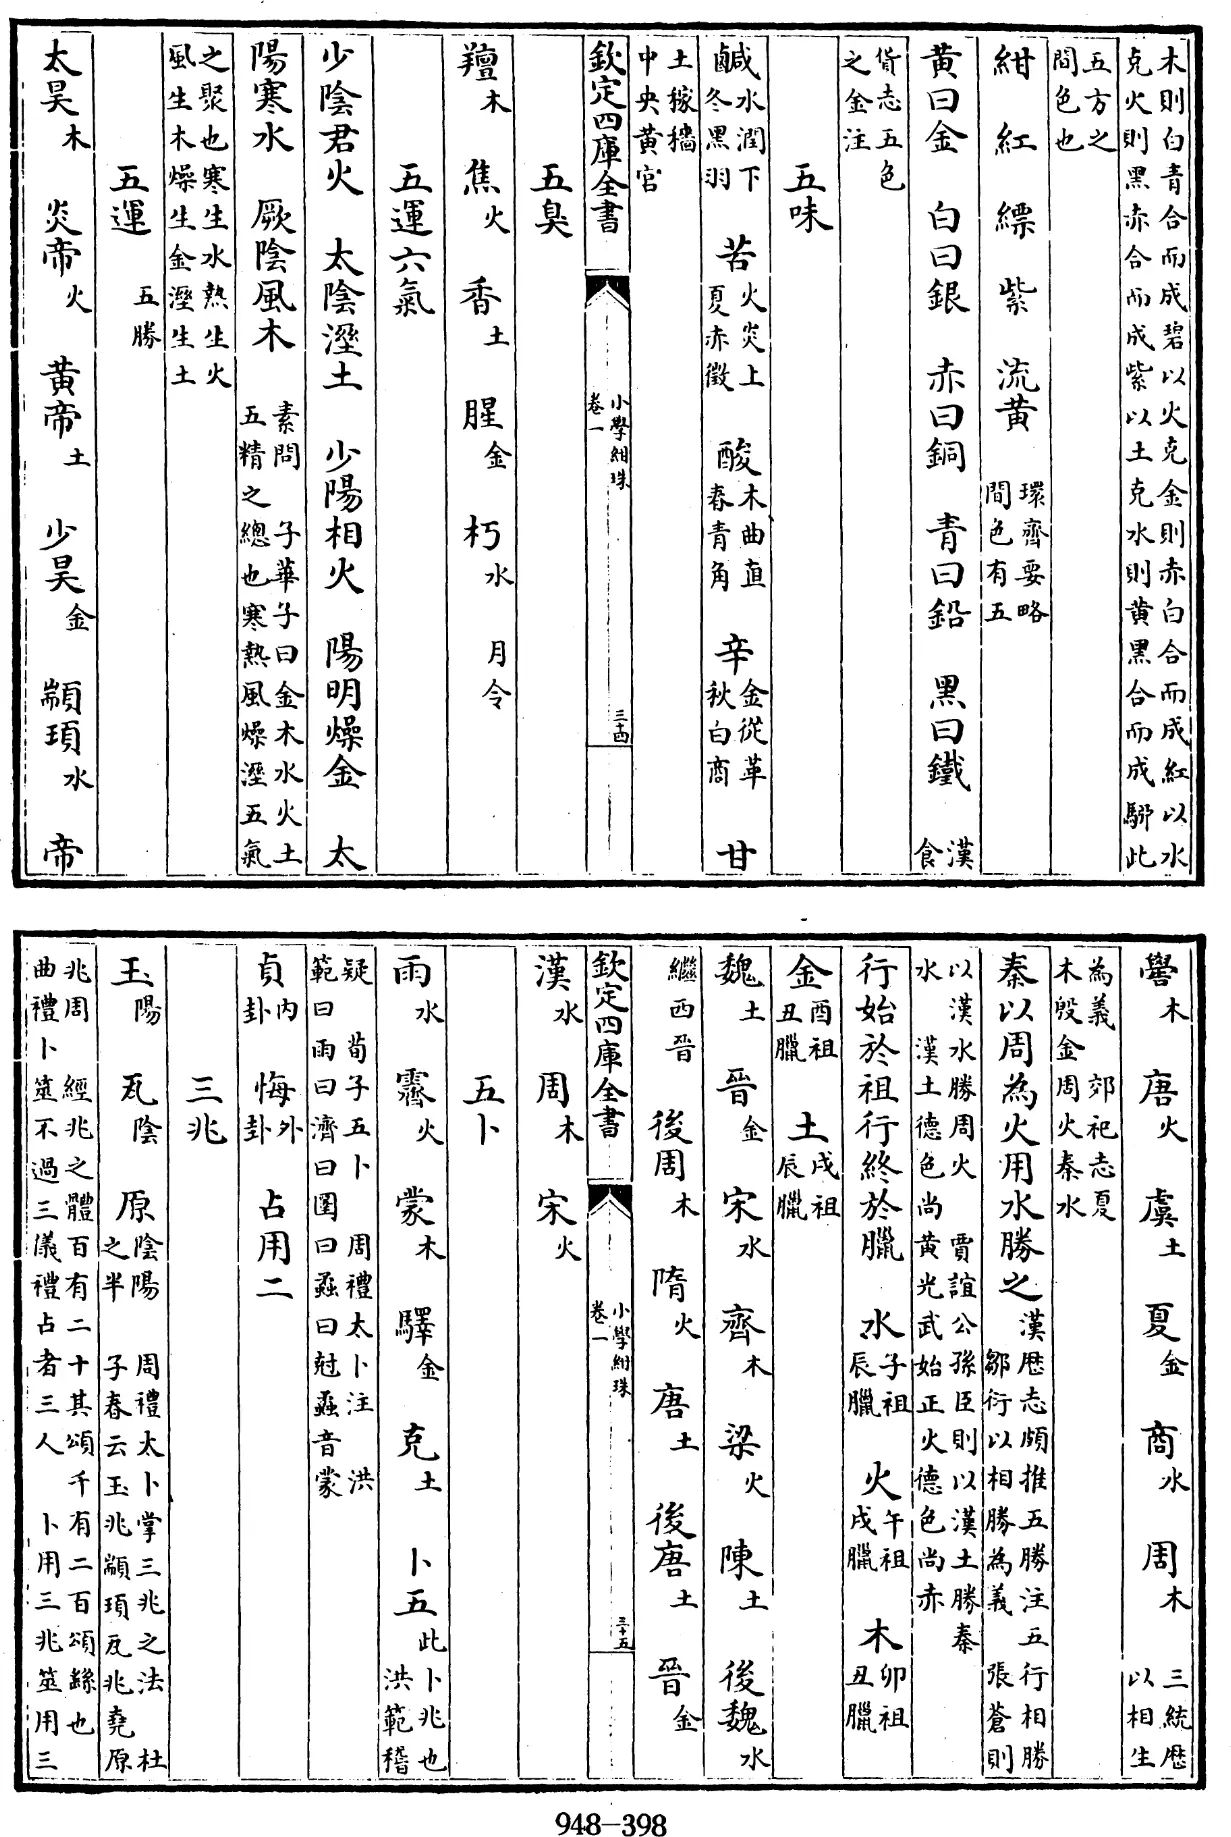 木則白青合而成碧以火克金則赤白合而成紅以水
克火則黑赤合而成紫以土克水則黄黑合而成騮此
五方之
間色也
紺 紅 縹 紫 流黄 環齊要略
間色有五
黄曰金 白曰銀 赤曰銅 青曰鉛 黑曰鐵 漢
食
貨志五色
之金注
五味
鹹 水潤下 冬黑羽 苦 火炎上 夏赤徵 酸 木曲直 春青角 辛 金從革 秋白商 甘
土稼穡
中央黄宫
欽定四庫全書
小學紺珠
卷一
三十四
五臭
羶木 焦火 香土 腥金 朽水 月令
五運六氣
少陰君火 太陰溼土 少陽相火 陽明燥金 太
陽寒水 厥陰風木 素問 子華子曰金木水火土
五精之總也寒熱風燥溼五氣
之聚也寒生水熱生火
風生木燥生金溼生土
五運 五勝
太昊木 炎帝火 黄帝土 少昊金 顓頊水 帝
嚳木 唐火 虞土 夏金 商水 周木 三統歴
以相生
為義 郊祀志夏
木殷金周火秦水
秦以周為火用水勝之 漢歴志頗推五勝注五行相勝
鄒衍以相勝為義 張蒼則
以漢水勝周火 賈誼公孫臣則以漢土勝秦
水 漢土德色尚黄光武始正火德色尚赤
行始於祖行終於臘 水 子祖 辰臘 火 午祖 戌臘 木 卯祖 丑臘
金 酉祖 丑臘 土 戌祖 辰臘
魏土 晉金 宋水 齊木 梁火 陳土 後魏水
繼西晉 後周木 隋火 唐土 後唐土 晉金
欽定四庫全書
小學紺珠
卷一
三十五
漢水 周木 宋火
五卜
雨水 霽火 蒙木 驛金 克土 卜五 此卜兆也
洪範稽
疑 荀子五卜 周禮太卜注 洪
範曰雨曰濟曰圛曰蟊曰尅蟊音蒙
貞 内卦 悔 外卦 占用二
三兆
玉陽 瓦陰 原 陰陽之半 周禮太卜掌三兆之法 杜
子春云玉兆顓頊瓦兆堯原
兆周 經兆之體百有二十其頌千有二百頌繇也
曲禮卜筮不過三儀禮占者三人 卜用三兆筮用三
948-398